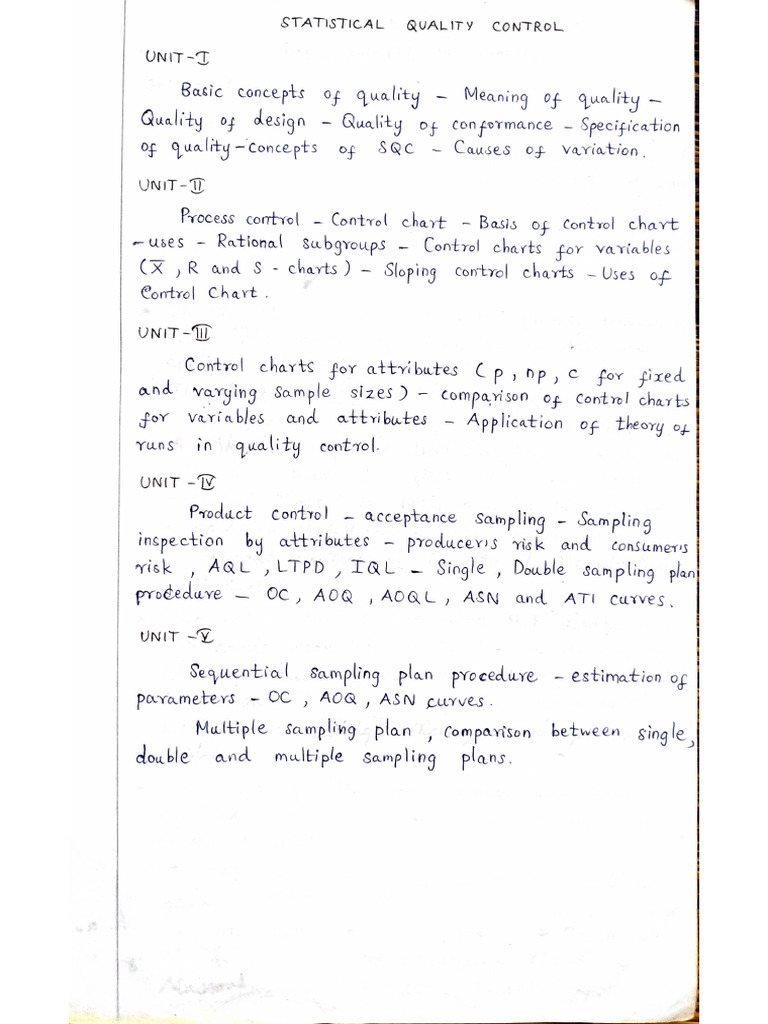 STATISTICAL QUALITY CONTROL
UNIT-I
Basic concepts of quality – Meaning of quality –
Quality of design – Quality of conformance – Specification
of quality – concepts of SQC – Causes of variation.
UNIT-II
Process control – Control chart – Basis of control chart
– uses – Rational subgroups – Control charts for variables
(X̅, R and S - charts) – Sloping control charts – Uses of
Control Chart.
UNIT-III
Control charts for attributes (p, np, c for fixed
and varying sample sizes) – comparison of control charts
for variables and attributes – Application of theory of
runs in quality control.
UNIT-IV
Product control – acceptance sampling – Sampling
inspection by attributes – producer's risk and consumer's
risk, AQL, LTPD, IQL – Single, Double sampling plan
procedure – OC, AOQ, AOQL, ASN and ATI curves.
UNIT-V
Sequential sampling plan procedure – estimation of
parameters – OC, AOQ, ASN curves.
Multiple sampling plan, comparison between single,
double and multiple sampling plans.